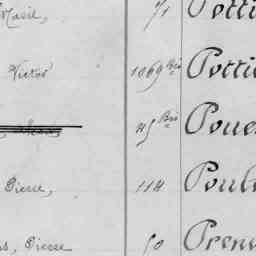 71 Potti
Victor 1069 Bis Potti
45 Bis Poue
Pierre, 114 Poul
Pierre 50 Preno